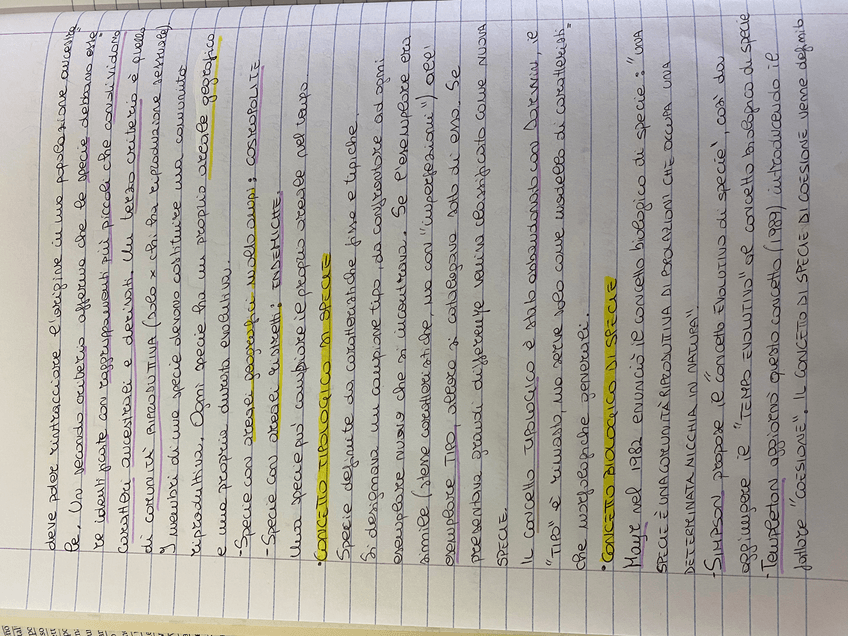 deve poter rintracciare l'origine in una popolazione ancestra=
le. Un secondo criterio afferma che le specie debbano esse=
re identificate con raggruppamenti più piccoli che condividono
caratteri ancestrali e derivati. Un terzo criterio è quello
di COMUNITÀ RIPRODUTTIVA (solo x chi ha riproduzione sessuale)
I membri di una specie devono costituire una comunità
riproduttiva. Ogni specie ha un proprio areale geografico
e una propria durata evolutiva.
-Specie con areali geografici molto ampi: COSMOPOLITE
-Specie con areali ristretti: ENDEMICHE.
Una specie può cambiare il proprio areale nel tempo.
•CONCETTO TIPOLOGICO DI SPECIE
Specie definite da caratteristiche fisse e tipiche.
Si designava un campione tipo, da confrontare ad ogni
esemplare nuovo che si incontrava. Se l'esemplare era
simile (stesse caratteristiche, ma con "imperfezioni") all'
esemplare TIPO, allora si catalogava sotto di esso. Se
presentava grandi differenze veniva classificato come NUOVA
SPECIE.
Il concetto TIPOLOGICO è stato abbandonato con Darwin, il
"TIPO" è rimasto, ma serve solo come modello di caratteristi=
che morfologiche generali.
•CONCETTO BIOLOGICO DI SPECIE
Mayr nel 1982 enunciò il concetto biologico di specie: "UNA
SPECIE È UNA COMUNITÀ RIPRODUTTIVA DI POPOLAZIONI CHE OCCUPA UNA
DETERMINATA NICCHIA IN NATURA"
-SIMPSON propose il "concetto EVOLUTIVO di specie", così da
aggiungere il "TEMPO EVOLUTIVO" al concetto biologico di specie
-Templeton aggiornò questo concetto (1989) introducendo il
fattore "COESIONE". Il CONCETTO DI SPECIE DI COESIONE venne definito